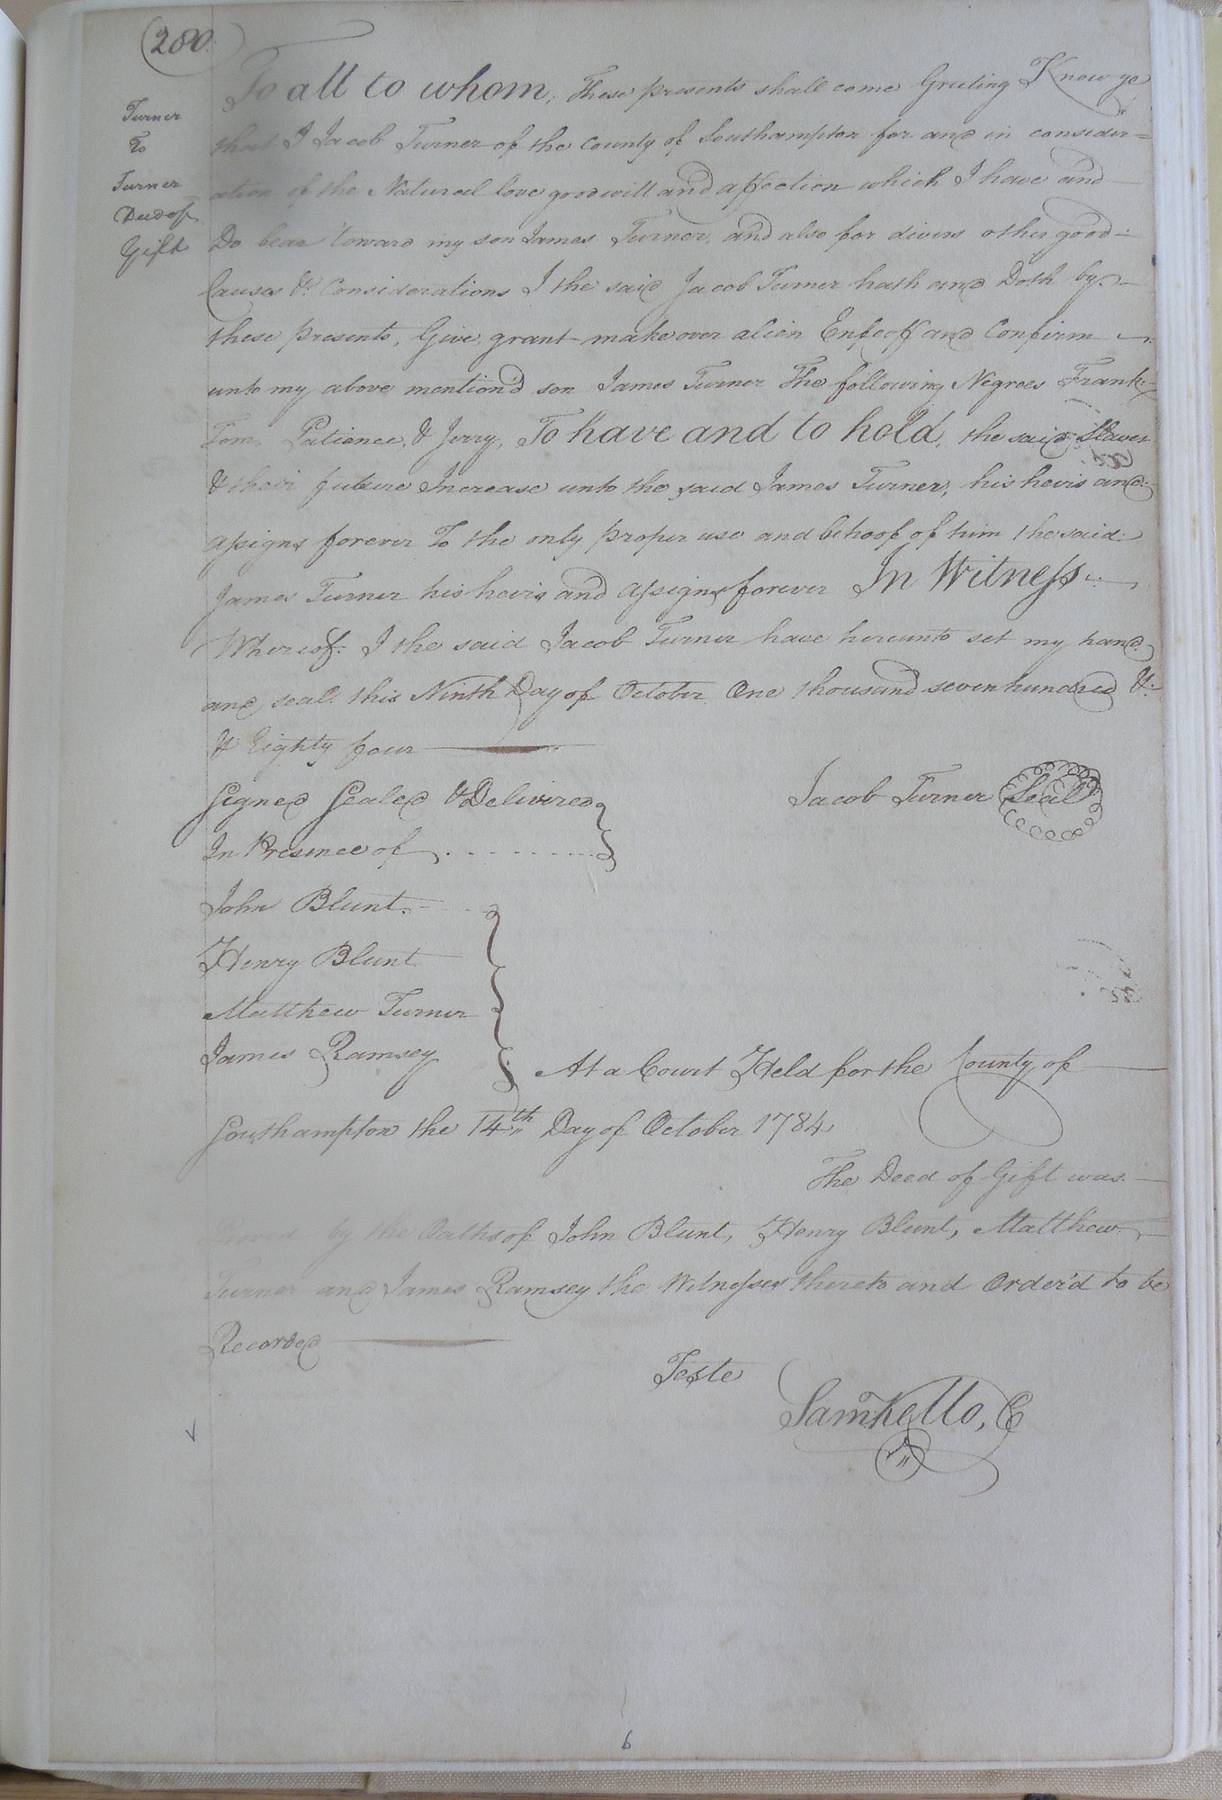 280.
To all to whom, These presents shall come Greeting Know ye
Turner
To
Turner
Deed of
Gift
that I Jacob Turner of the County of Southampton for and in consider=
ation of the Natural love goodwill and affection which I have and
Do bear toward my son James Turner, and also for divers other good
Causes & Considerations I the said Jacob Turner hath and Doth by
these presents, Give, grant make over alien Enfeoff and Confirm
unto my above mention'd son James Turner The following Negroes Frank
Tom, Patience, & Jerry, To have and to hold, the said Slaves
& their future Increase unto the said James Turner, his heirs and
assigns forever To the only proper use and behoof of him the said
James Turner his heirs and assigns forever In Witness
Whereof I the said Jacob Turner have hereunto set my hand
and seal this Ninth Day of October One thousand seven hundred &
& Eighty four
Signed Sealed & Delivered
Jacob Turner Seal
In Presence of
John Blunt
Henry Blunt
Matthew Turner
James Ramsey
At a Court Held for the County of
Southampton the 14th Day of October 1784
The Deed of Gift was
by the Oaths of John Blunt, Henry Blunt, Matthew
Turner and James Ramsey the Witnesses thereto and Order'd to be
Recorded
Teste
Sam Kello, C
6